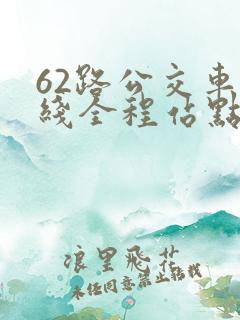 62路公交車
綫全程佔點
浪里飛花
未经同意禁止轉载